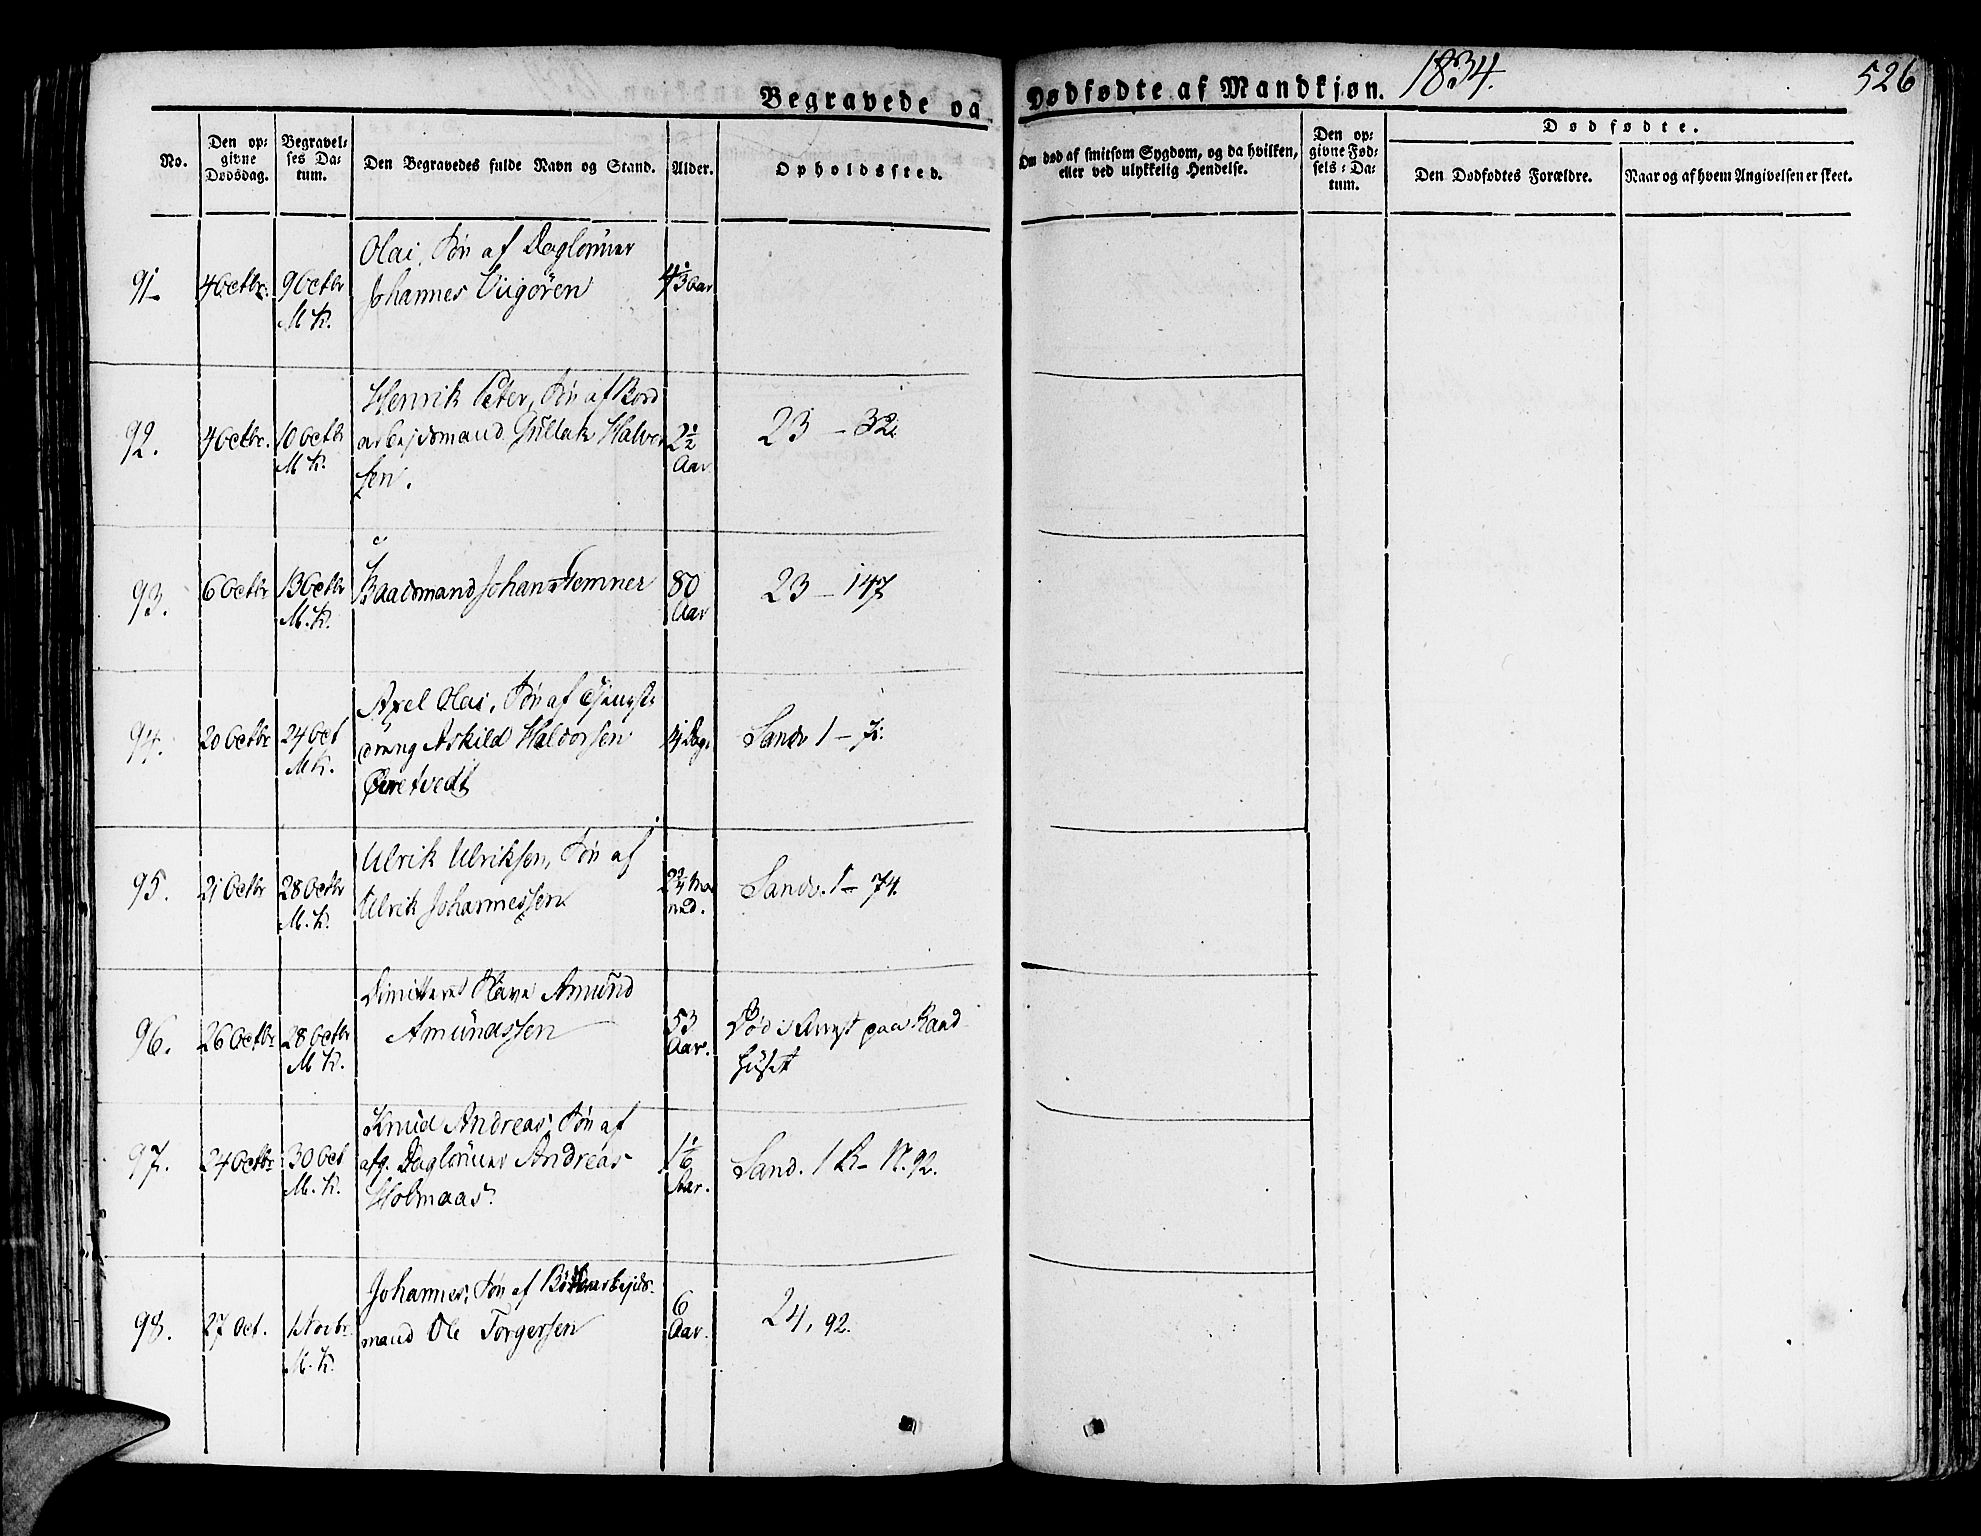 Begravede og Dødfødte af Mandkjøn. 1834.
526
No.
Den opgivne Dødsdag.
Begravelses Datum.
Den Begravedes fulde Navn og Stand.
Alder.
Opholdssted.
Om død af smitsom Sygdom, og da hvilken, eller ved ulykkelig Hendelse.
Den opgivne Fødsels-Datum.
Dødfødte.
Den Dødfødtes Forældre.
Naar og af hvem Angivelsen er skeet.
91.
4 Octbr.
9 Octbr
M K.
Olai, Søn af Daglønner
Johannes Viigøren
4 1/3 Aar
92.
4 Octbr.
10 Octbr
M K.
Henrik Peter, Søn af Bord
arbejdsmand Gullak Halvor
sen.
2 1/2
Aar
23 – 32.
93.
6 Octbr
13 Octbr
M. K.
Baadsmand Johan Stemner
80
Aar
23 – 147
94.
20 Octbr
24 Oct
M K.
Axel Olai, Søn af Tjeneste
dreng Askild Haldorsen
Øvretvedt
14 Dag.
Sandv 1 – 7.
95.
21 Octbr
28 Octbr
M. K.
Ulrik Ulriksen, Søn af
Ulrik Johannessen
2 3/4 Maa
ned.
Sandv. 1 – 74.
96.
26 Octbr
28 Octbr
M K.
Dimitteret Slave Amund
Amundssen
53
Aar.
Død i Arrest paa Raad
huset
97.
24 Octbr
30 Oct
M. K.
Knud Andreas, Søn af
afg. Daglønner Andreas
Holmaas
1 1/6
Aar.
Sand. 1 R – N. 92.
98.
27 Oct.
1 Novbr.
M. K.
Johannes, Søn af
mand Ole Torgersen
6
Aar.
24, 92.